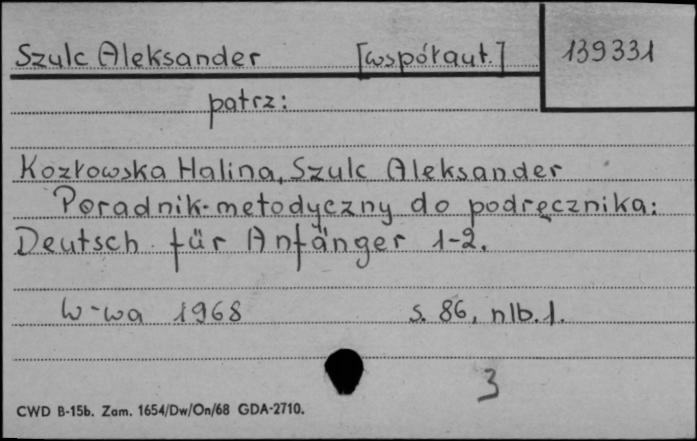 Szulc Aleksander [współaut.] 139331
patrz:
Kozłowska Halina, Szulc Aleksander
Poradnik metodyczny do podręcznika:
Deutsch für Anfänger 1-2.
W-wa 1968 s. 86, nlb. 1.
3
CWD B-15b. Zam. 1654/Dw/On/68 GDA-2710.